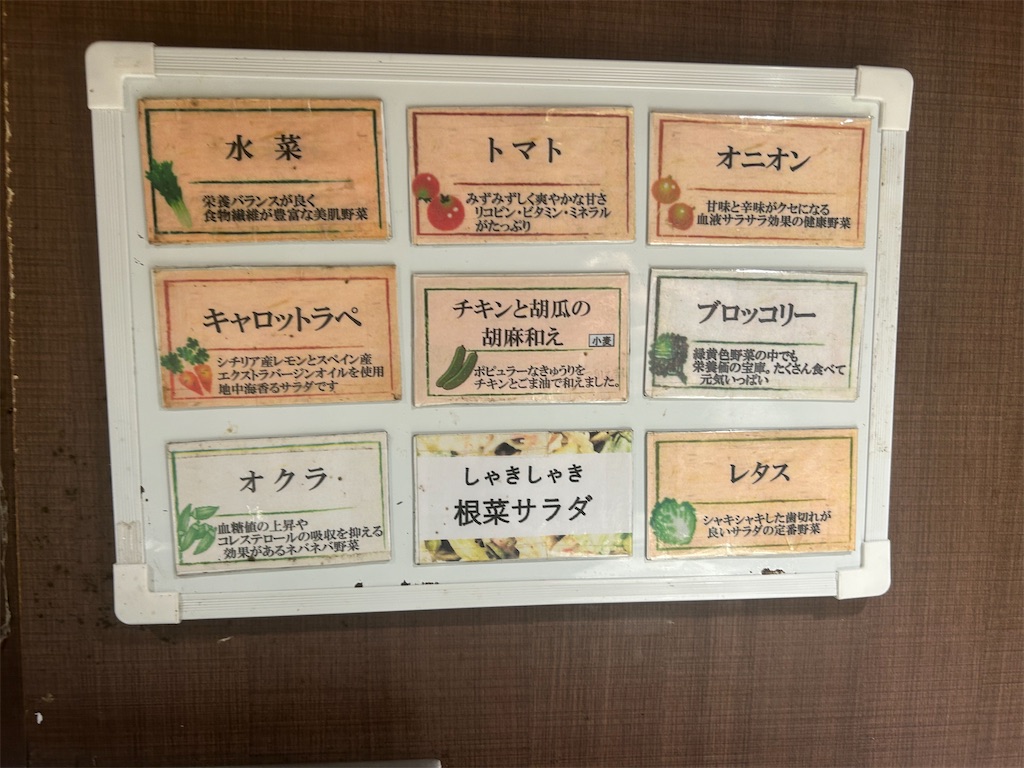 水菜
栄養バランスが良く
食物繊維が豊富な美肌野菜
トマト
みずみずしく爽やかな甘さ
リコピン・ビタミン・ミネラル
がたっぷり
オニオン
甘味と辛味がクセになる
血液サラサラ効果の健康野菜
キャロットラペ
シチリア産レモンとスペイン産
エクストラバージンオイルを使用
地中海香るサラダです
チキンと胡瓜の
胡麻和え
小麦
ポピュラーなきゅうりを
チキンとごま油で和えました。
ブロッコリー
緑黄色野菜の中でも
栄養価の宝庫。たくさん食べて
元気いっぱい
オクラ
血糖値の上昇や
コレステロールの吸収を抑える
効果があるネバネバ野菜
しゃきしゃき
根菜サラダ
レタス
シャキシャキした歯切れが
良いサラダの定番野菜